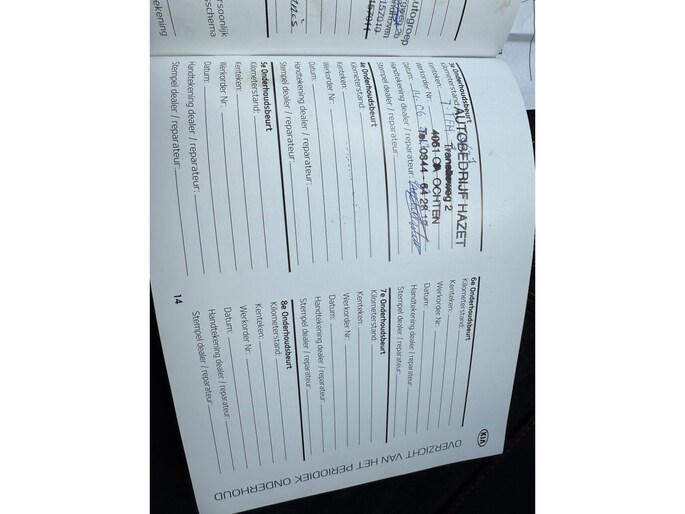 OVERZICHT VAN HET PERIODIEK ONDERHOUD
KIA
3e Onderhoudsbeurt
Kilometerstand:
Kenteken:
Werkorder Nr.:
Datum: 14-06
Handtekening dealer / reparateur:
Stempel dealer / reparateur:
AUTOBEDRIJF HAZET
2
4051 CA OCHTEN
Tel. 0344 - 64 28
4e Onderhoudsbeurt
Kilometerstand:
Kenteken:
Werkorder Nr.:
Datum:
Handtekening dealer / reparateur:
Stempel dealer / reparateur:
5e Onderhoudsbeurt
Kilometerstand:
Kenteken:
Werkorder Nr.:
Datum:
Handtekening dealer / reparateur:
Stempel dealer / reparateur:
6e Onderhoudsbeurt
Kilometerstand:
Kenteken:
Werkorder Nr.:
Datum:
Handtekening dealer / reparateur:
Stempel dealer / reparateur:
7e Onderhoudsbeurt
Kilometerstand:
Kenteken:
Werkorder Nr.:
Datum:
Handtekening dealer / reparateur:
Stempel dealer / reparateur:
8e Onderhoudsbeurt
Kilometerstand:
Kenteken:
Werkorder Nr.:
Datum:
Handtekening dealer / reparateur:
Stempel dealer / reparateur:
14
ersoonlijk
sschema
ekening
utogroep